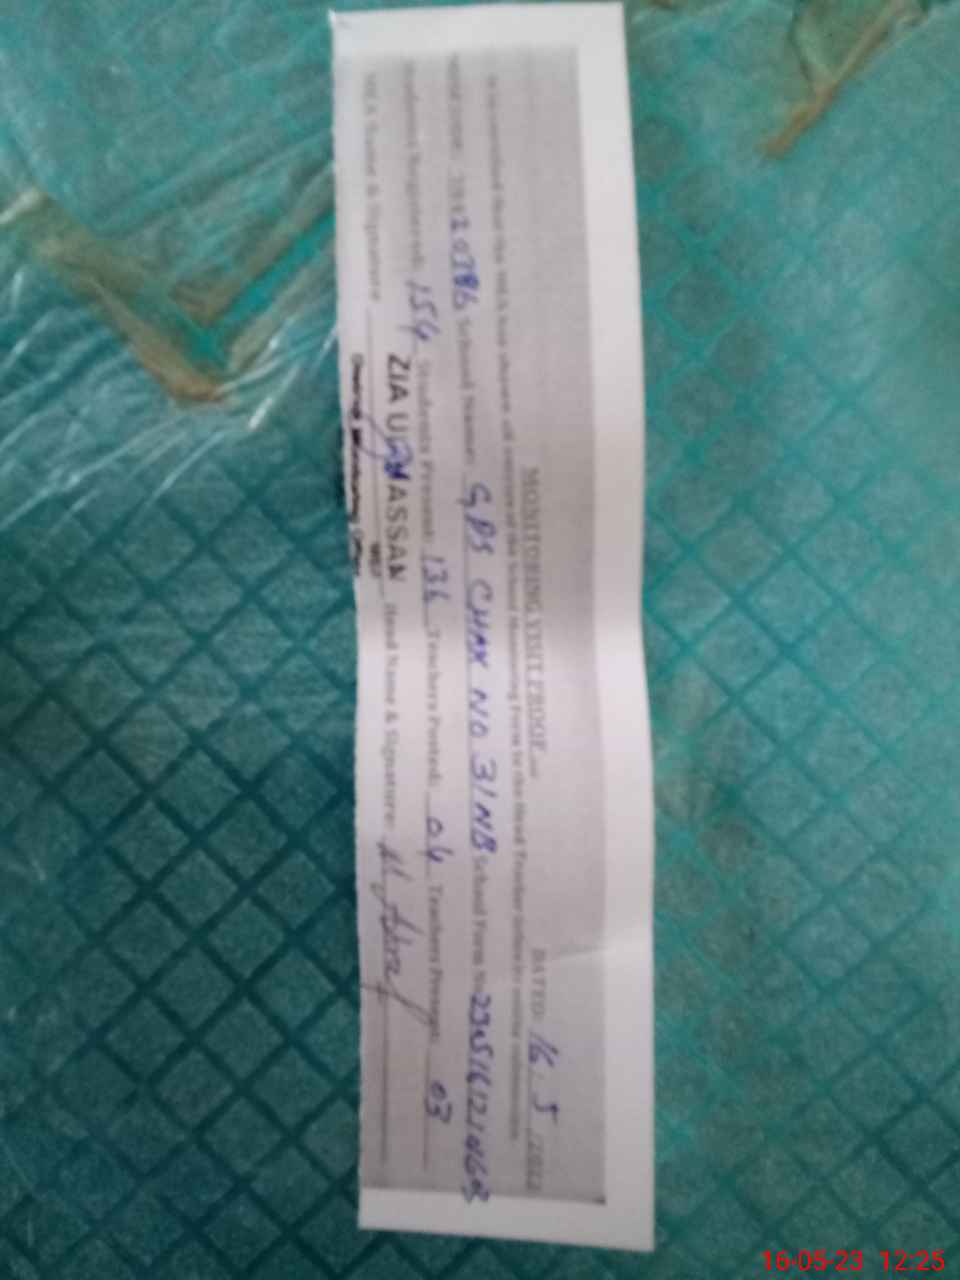 MONITORING VISIT PROOF DATED: 16.5
It is certified that the MEA has shown all entries of the School Monitoring Form to the Head Teacher before online submission.
School Name: GPS CHAK NO 31NB School Form No
Students Registered: 154 Students Present: 136 Teachers Posted: 04 Teachers Present: 03
MEA Name & Signature ZIA UL HASSAN Head Name & Signature:
16-05-23 12:25